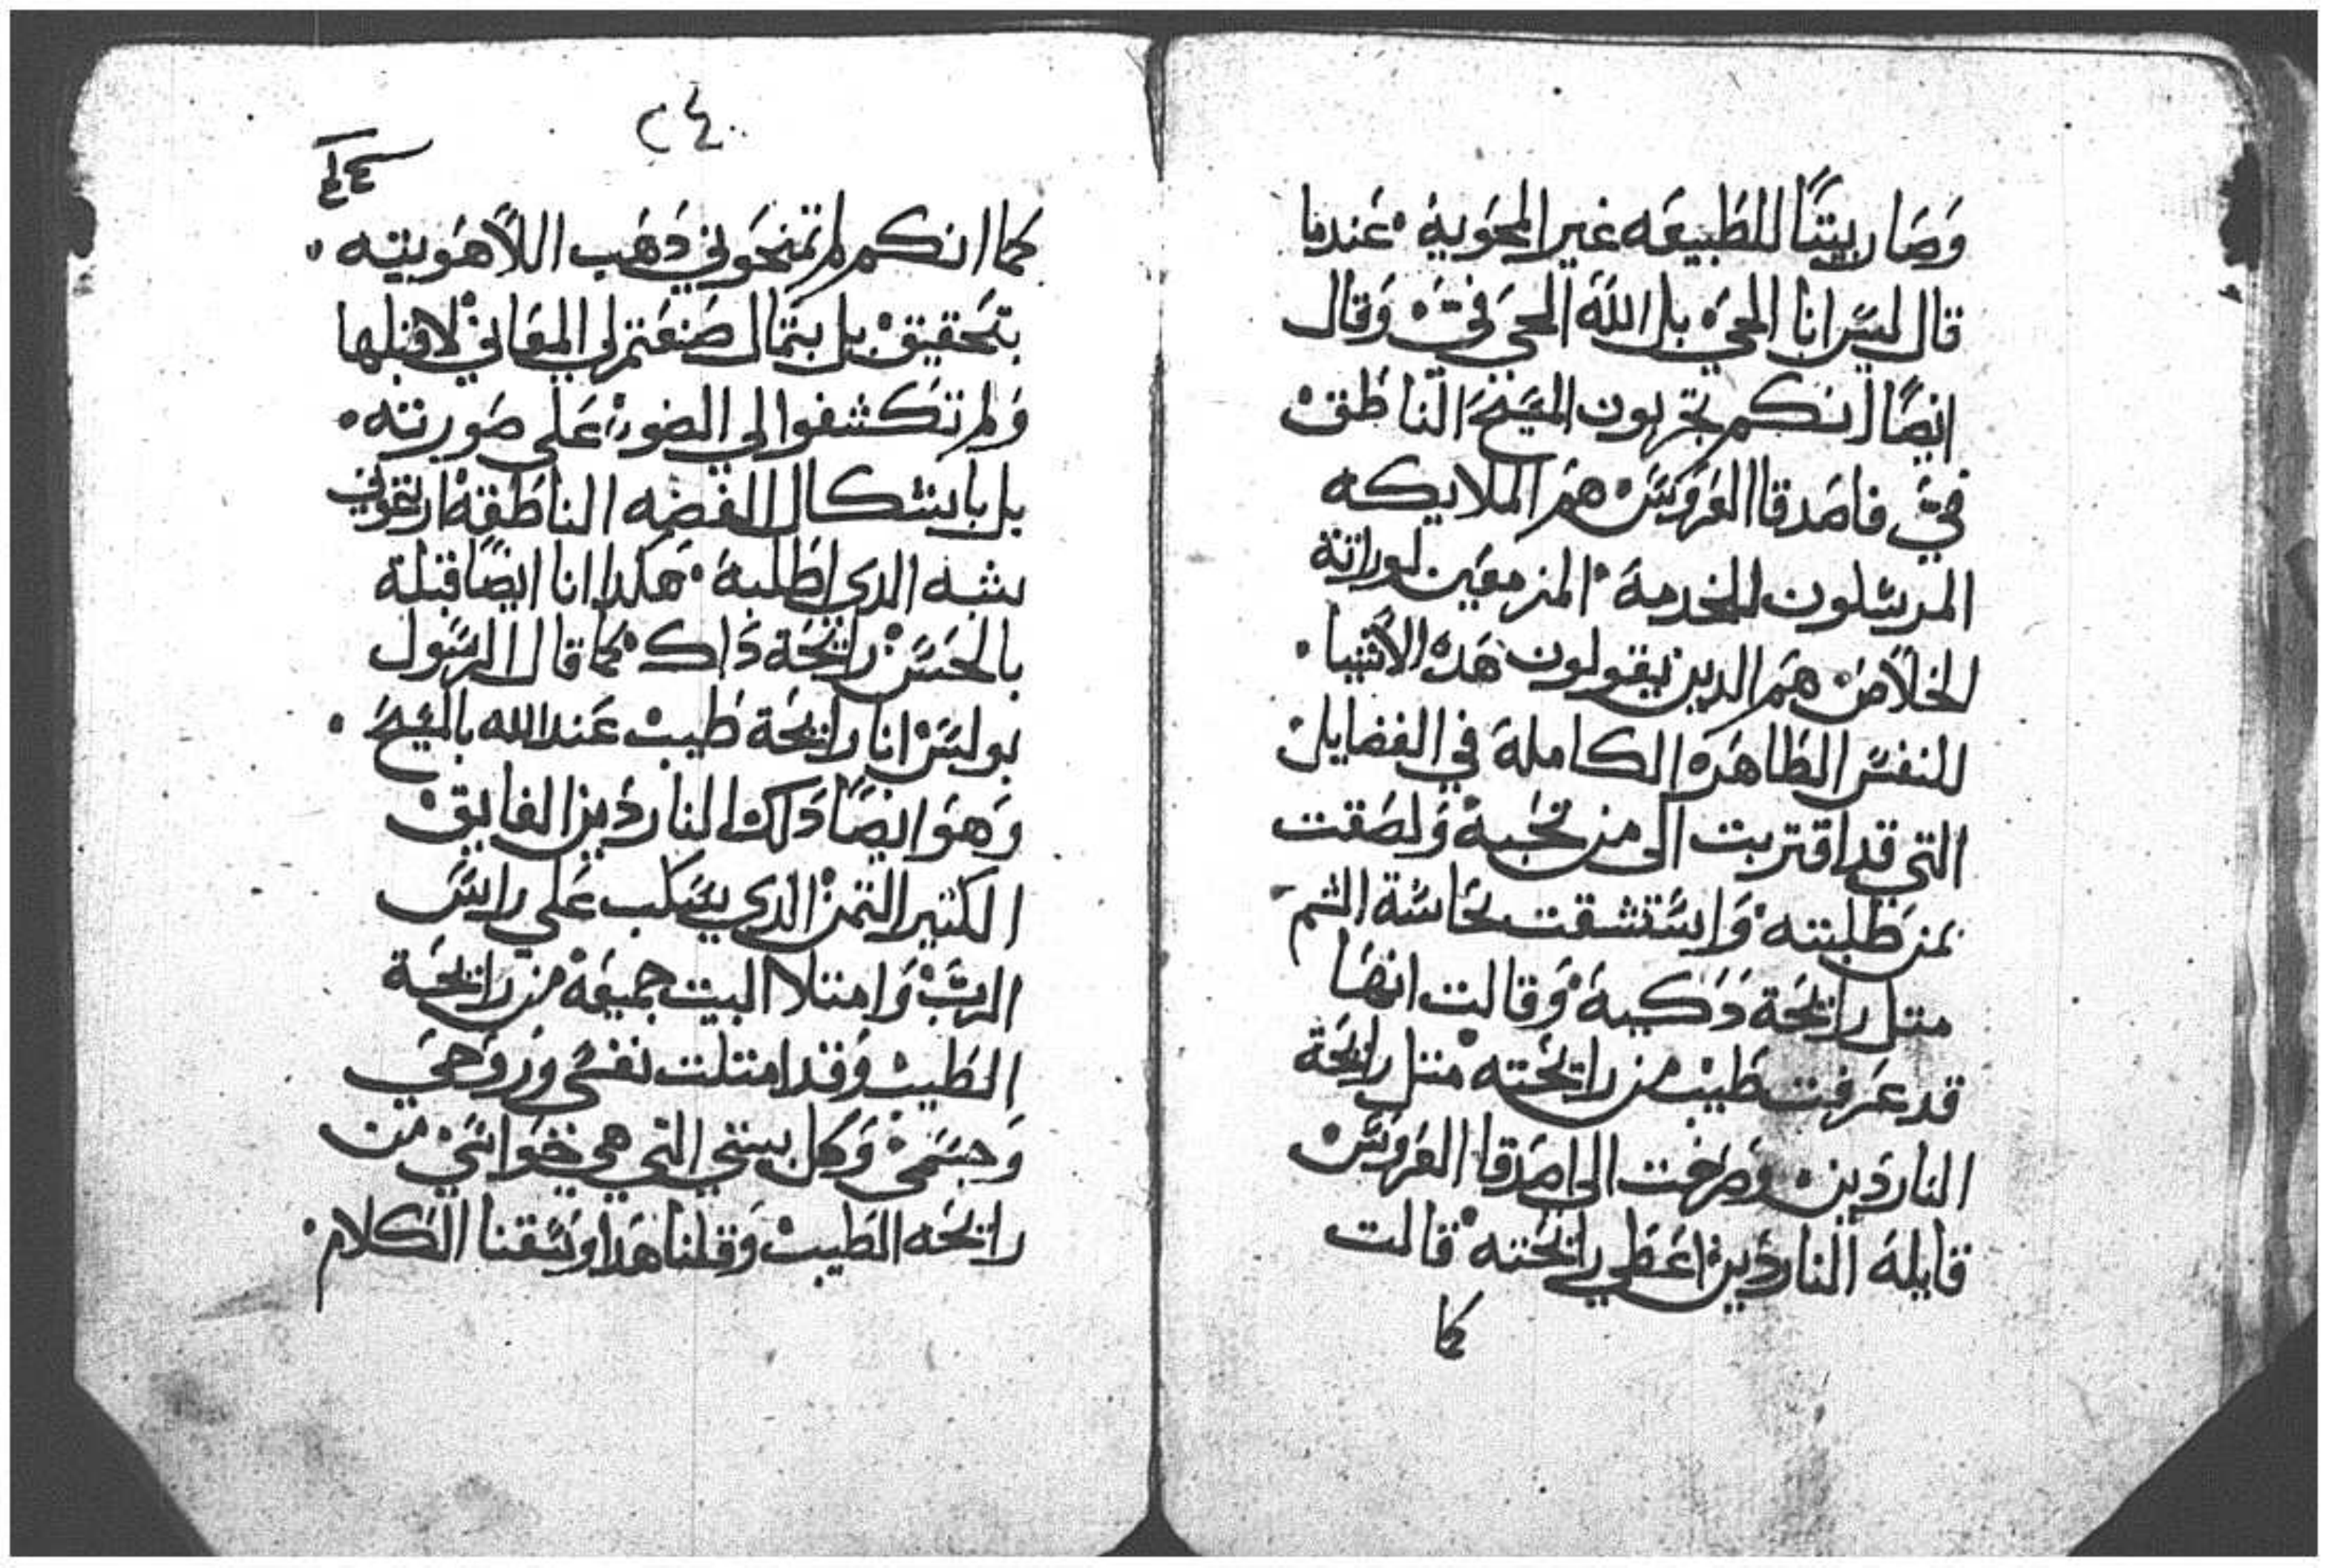 وَصَار بيتًا للطبيعه غير المحوية • عندما
قال ليس انا الحي بل الله الحي فيَّ وقال
ايضًا انكم تجربون المسيح الناطق
فيّ فاصدقا العروس هم الملايكه
المرسلون للخدمة • المزمعين لوراتة
الخلاص هم الدين يقولون هده الاشيا •
للنفس الطاهره الكاملة في الفضايل
التي قد اقتربت الى من تحبه ولصقت
بمن طلبته واستنشقت بحاسة الشم
متل رايحة دكية وقالت انها
قد عرفت طيب من رايحته متل رايحة
الناردين وصرخت الى اصدقا العروس
قايلة الناردين اعطي رايحته قالت
كما
٢٤
كما انكم لم تمنحوني دهب اللاهوتيه
بتحقيق بل بتمال صنعتم لي المعاني لاقبلها
ولم تكشفوا لي الضو على صورته •
بل باشكال الفضه الناطقة اريتموني
شبه الدي اطلبه • هكدا انا ايضًا قبلة
بالحس رايحة داك كما قال الرسول
بولس انا رايحة طيب عند الله بالمسيح •
وهو ايضًا دلك الناردين الفايق
الكتير التمن الدي يسكب على راس
الرب وامتلا البيت جميعه من رايحة
الطيب وقد امتلت نفسي وروحي
وجسمي وكل بيتي التي هي حواسي من
رايحه الطيب وقلنا هدا وسقنا الكلام •